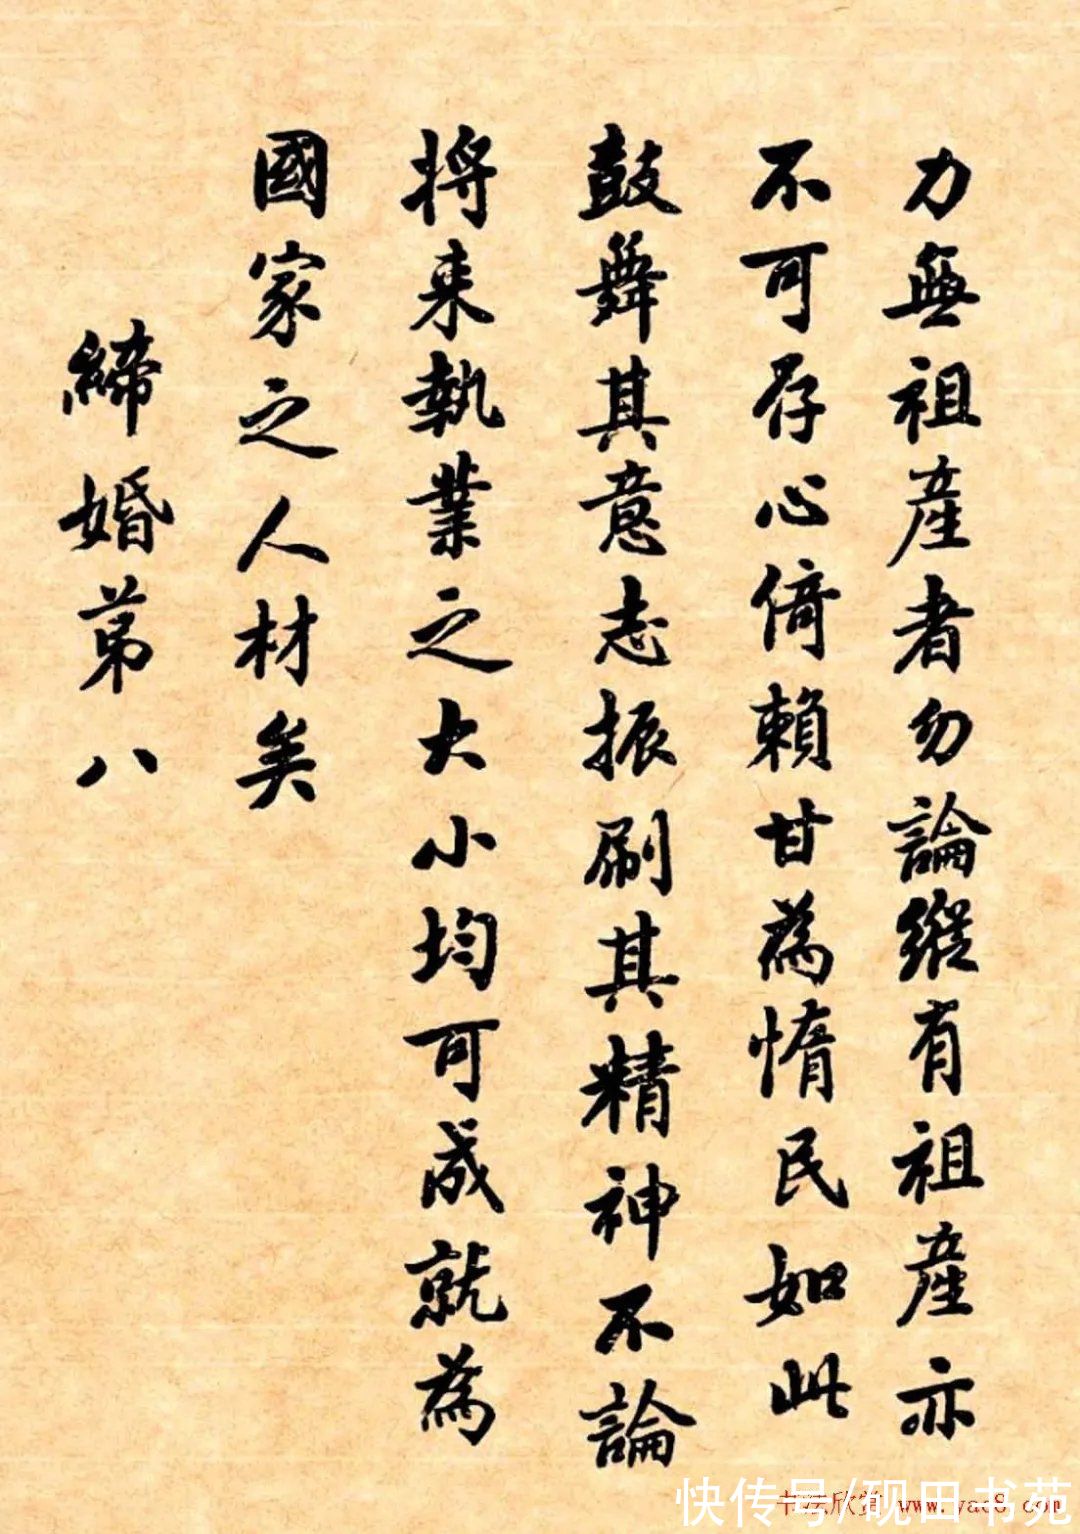 力無祖產者勿論縱有祖產亦
不可存心倚賴甘為惰民如此
鼓舞其意志振刷其精神不論
將来執業之大小均可成就為
國家之人材矣
締婚第八
快传号/砚田书苑
书法欣赏 www.yac8.com